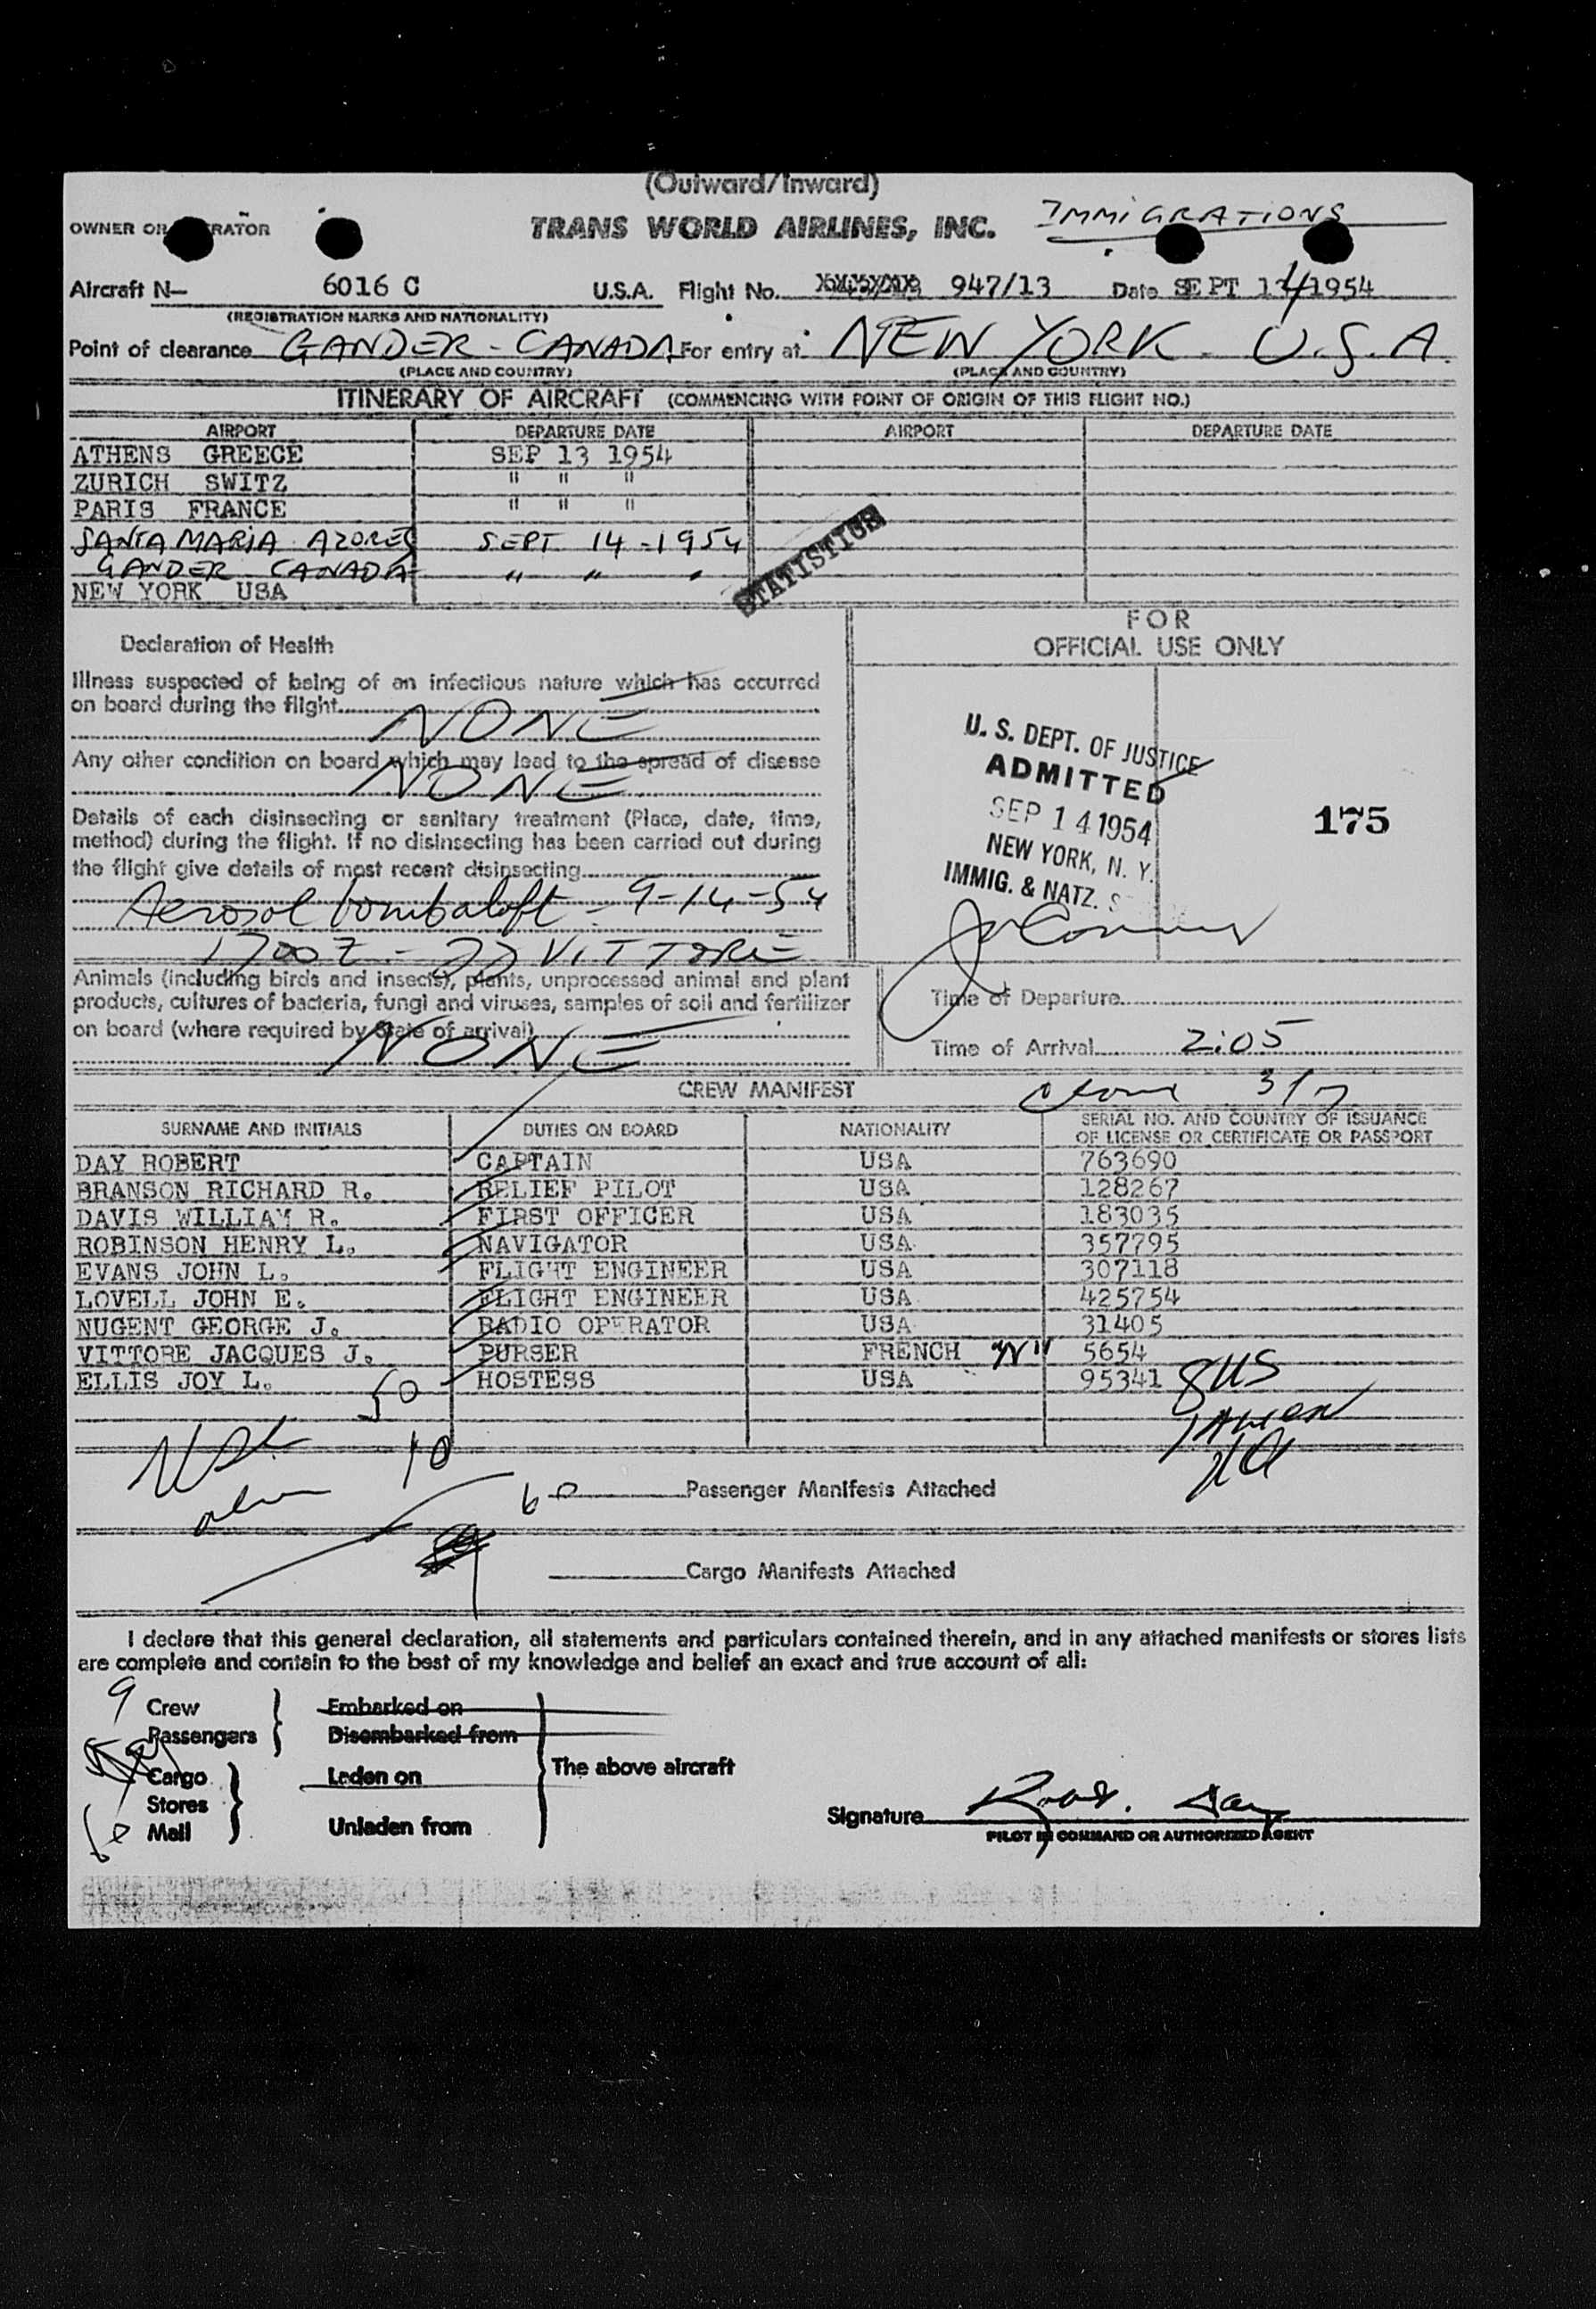 (Outward/Inward)
OWNER OR RATOR
TRANS WORLD AIRLINES, INC.
IMMIGRATIONS
Aircraft N— 6016 C U.S.A. Flight No. 947/13 Date SEPT 14/1954
(REGISTRATION MARKS AND NATIONALITY)
Point of clearance GANDER - CANADA For entry at NEW YORK - U.S.A.
(PLACE AND COUNTRY) (PLACE AND COUNTRY)
ITINERARY OF AIRCRAFT (COMMENCING WITH POINT OF ORIGIN OF THIS FLIGHT NO.)
AIRPORT DEPARTURE DATE AIRPORT DEPARTURE DATE
ATHENS GREECE SEP 13 1954
ZURICH SWITZ " " "
PARIS FRANCE " " "
SANTA MARIA AZORES SEPT 14-1954
GANDER CANADA " " "
NEW YORK USA
STATISTICS
Declaration of Health
Illness suspected of being of an infectious nature which has occurred
on board during the flight
NONE
Any other condition on board which may lead to the spread of disease
NONE
Details of each disinsecting or sanitary treatment (Place, date, time,
method) during the flight. If no disinsecting has been carried out during
the flight give details of most recent disinsecting
Aerosol bombaloft - 9-14-54
1700Z - JJ VITTORE
Animals (including birds and insects), plants, unprocessed animal and plant
products, cultures of bacteria, fungi and viruses, samples of soil and fertilizer
on board (where required by State of arrival)
NONE
FOR
OFFICIAL USE ONLY
U. S. DEPT. OF JUSTICE
ADMITTED
SEP 14 1954
NEW YORK, N. Y.
IMMIG. & NATZ.
175
Time of Departure
Time of Arrival 2:05
CREW MANIFEST
SURNAME AND INITIALS DUTIES ON BOARD NATIONALITY SERIAL NO. AND COUNTRY OF ISSUANCE
OF LICENSE OR CERTIFICATE OR PASSPORT
DAY ROBERT CAPTAIN USA 763690
BRANSON RICHARD R. RELIEF PILOT USA 128267
DAVIS WILLIAM R. FIRST OFFICER USA 183035
ROBINSON HENRY L. NAVIGATOR USA 357795
EVANS JOHN L. FLIGHT ENGINEER USA 307118
LOVELL JOHN E. FLIGHT ENGINEER USA 425754
NUGENT GEORGE J. RADIO OPERATOR USA 31405
VITTORE JACQUES J. PURSER FRENCH 5654
ELLIS JOY L. HOSTESS USA 95341
8 US
1 Alien
50
10
60 Passenger Manifests Attached
Cargo Manifests Attached
I declare that this general declaration, all statements and particulars contained therein, and in any attached manifests or stores lists
are complete and contain to the best of my knowledge and belief an exact and true account of all:
9 Crew Embarked on
Passengers Disembarked from
Cargo Laden on The above aircraft
Stores
Mail Unladen from
Signature Robt. Day
PILOT IN COMMAND OR AUTHORIZED AGENT